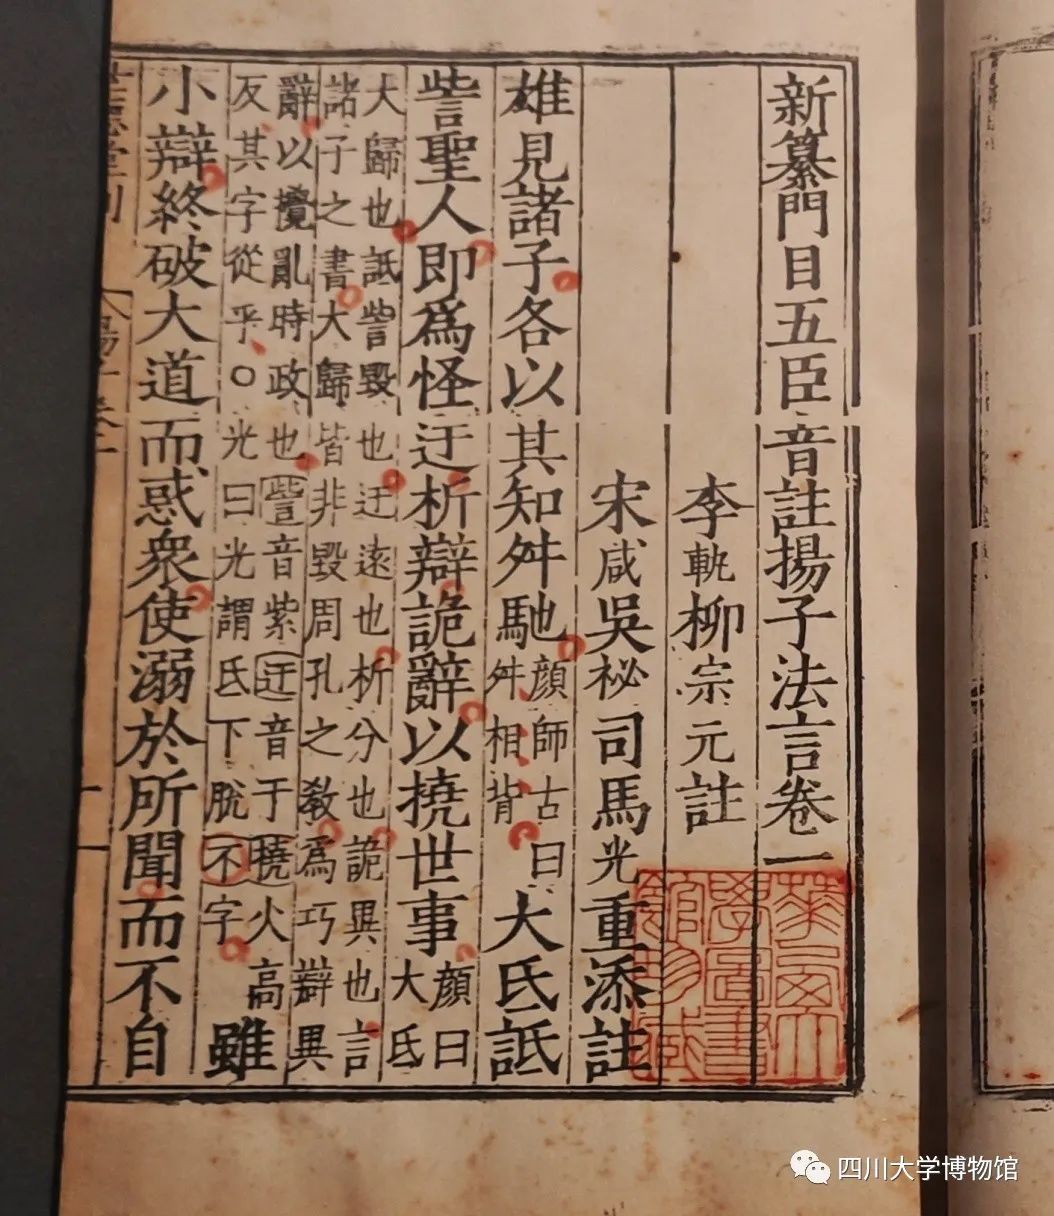 新纂門目五臣音註揚子法言卷一
李軌柳宗元註
宋咸吳祕司馬光重添註
雄見諸子各以其知舛馳
顏師古曰
舛相背
大氐詆
訾聖人即爲怪迂析辯詭辭以撓世事
顏曰
大氐
大歸也詆訾毀也迂遠也析分也詭異也言
諸子之書大歸皆非毀周孔之教爲巧辯異
辭以攪亂時政也訾音紫迂音于撓火高
反其字從乎○光曰光謂氐下脫不字
雖
小辯終破大道而惑衆使溺於所聞而不自
華西大
學圖書
館珍藏
四川大学博物馆